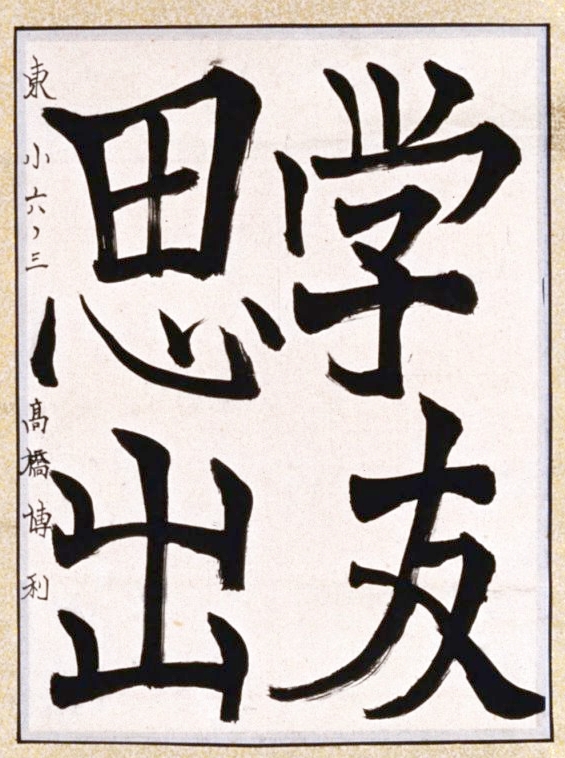 学友
思出
東 小六ノ三 髙橋博利